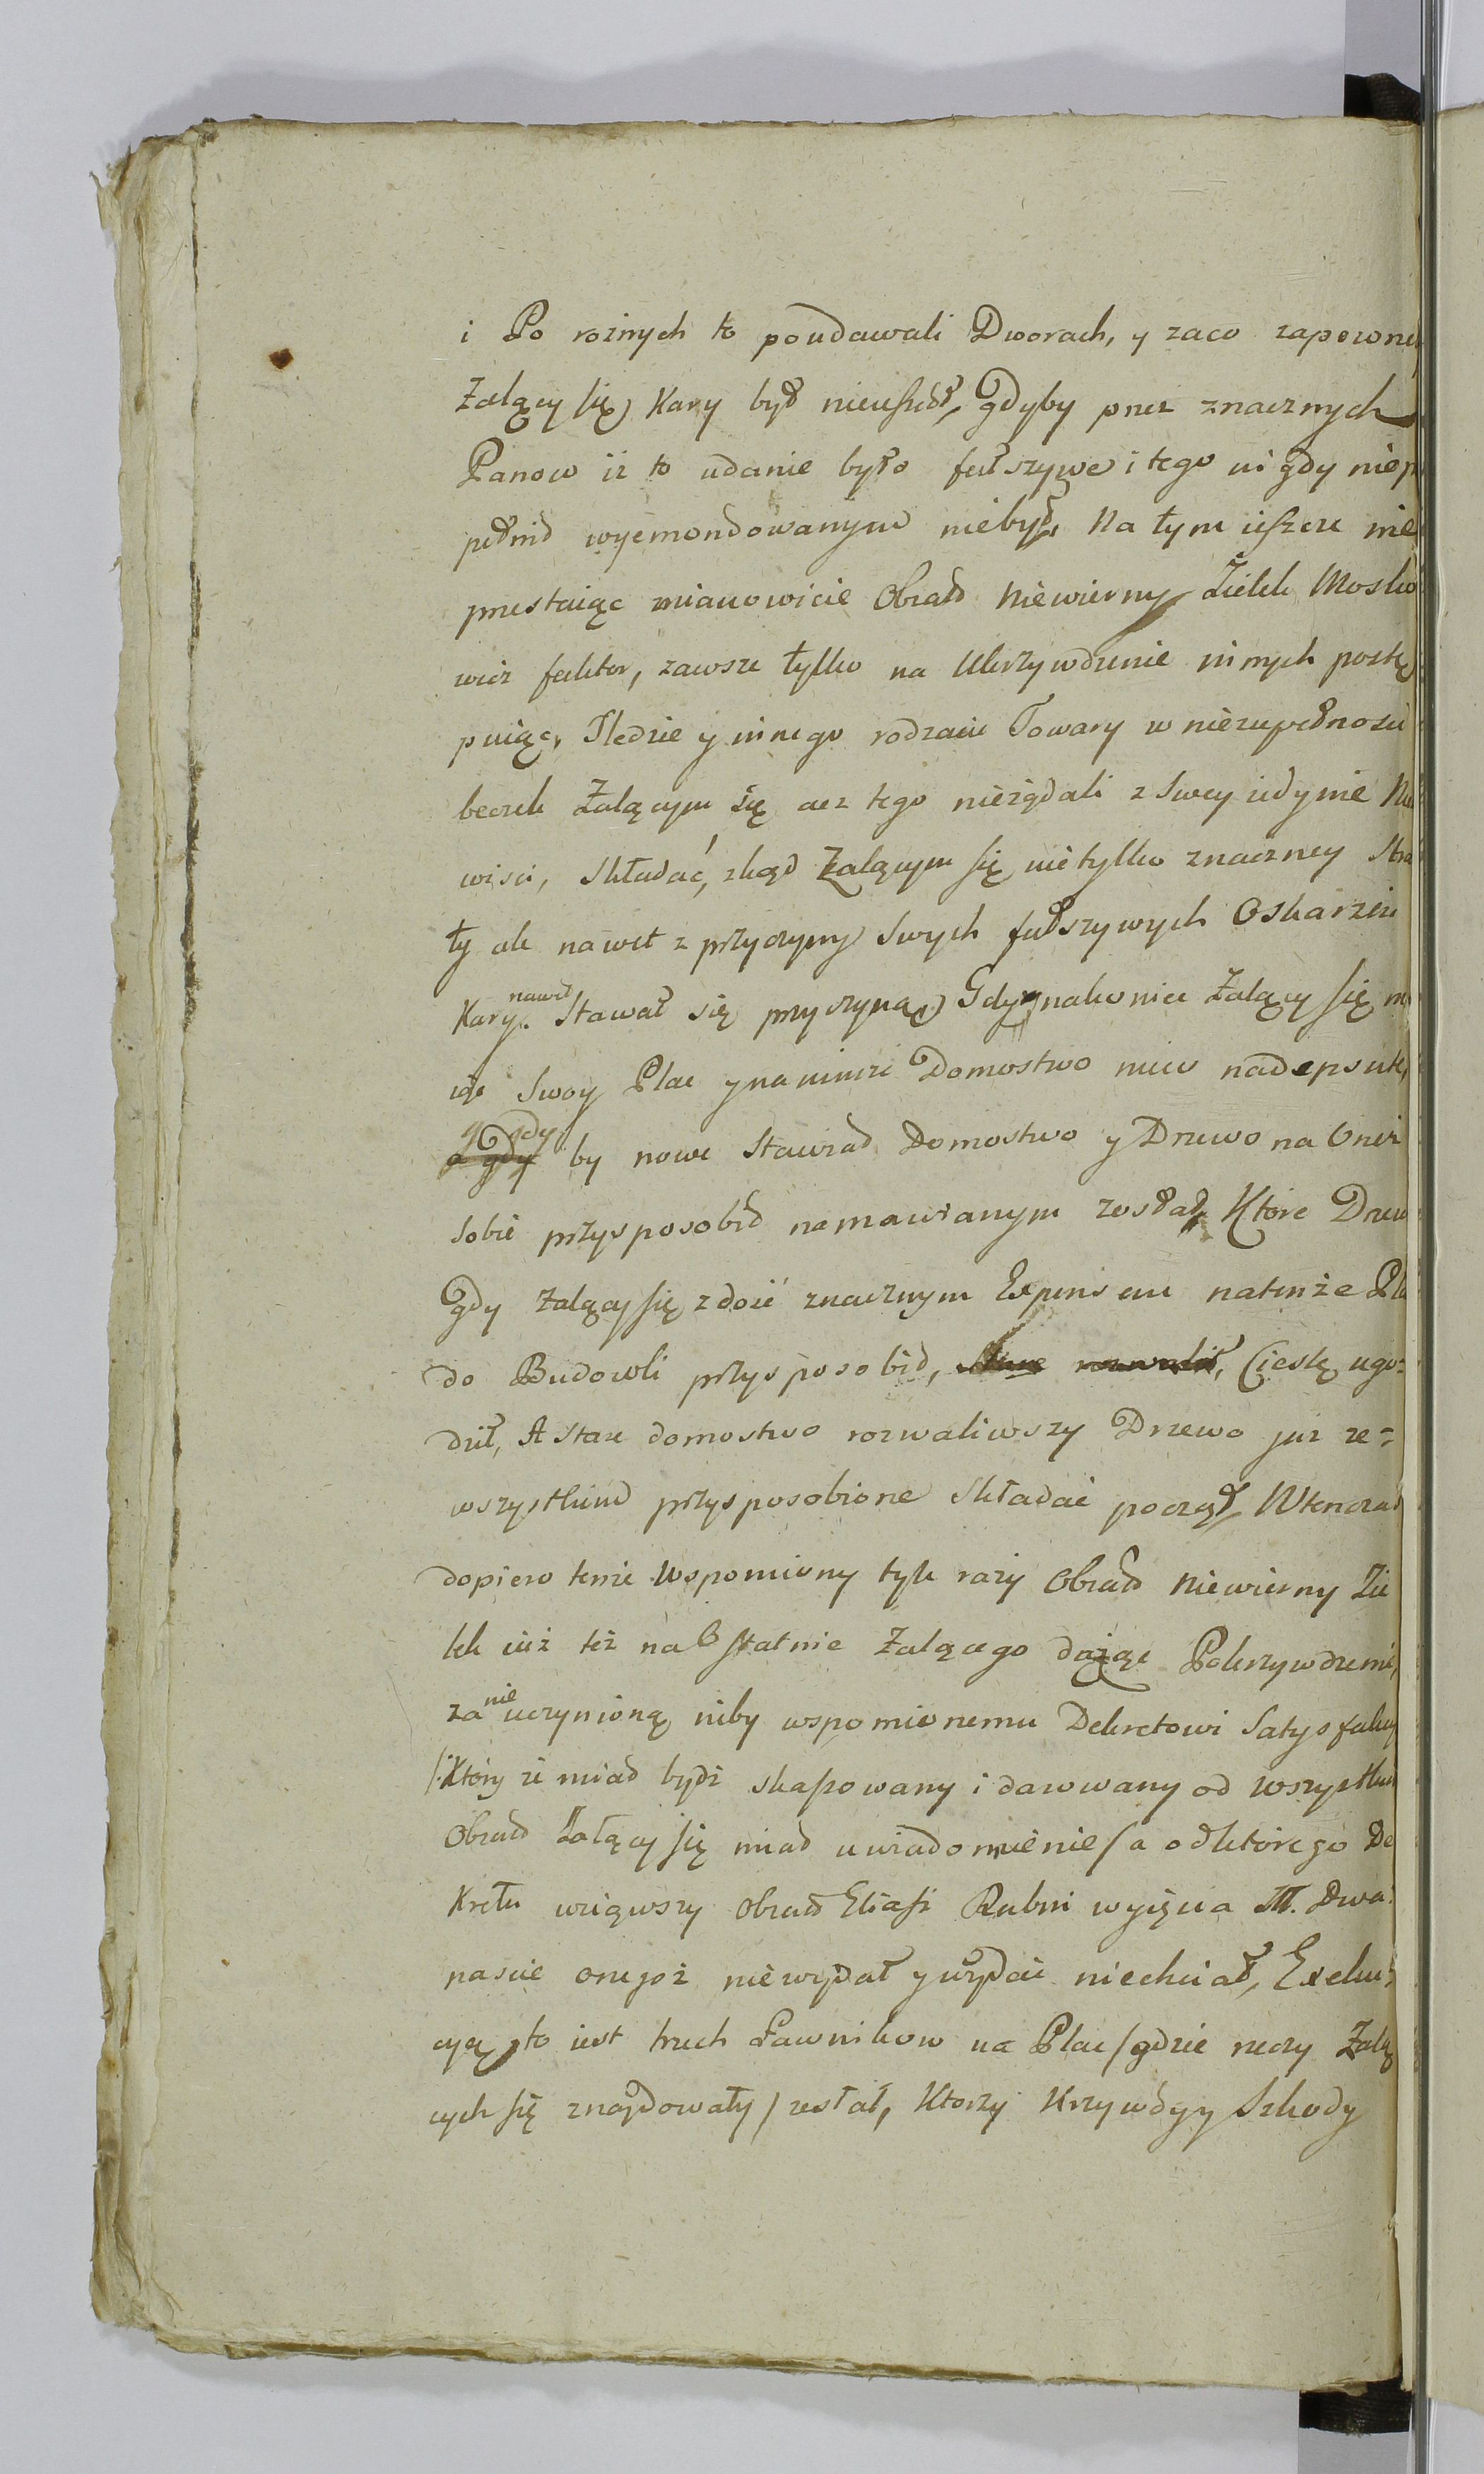 i Po rożnych to poudawali Dworach, y zaco zapewne
Żalący się Kary był nieuszedł, gdyby przez znacznych
Panow iż to udanie było fałszywe i tego nigdy niep
pełnił wyemondowanym niebył, Na tym ieszcze nie
przestaiąc mianowicie Obżał Niewierny Zielek Mosko
wicz faktor, zawsze tylko na Ukrzywdzenie innych postę
puiąc, Sledzie y innego rodzaiu Towary w niezupełnosci
beczek Żalącym się acz tego nieżądali z Swey iedynie
wisci, Składać, zkąd Żalącym się nietylko znaczney Stra
ty ale nawet z przyczyny Swych fałszywych Oskarżeń
Kary nawet Stawał się przyczyną, Gdy nakoniec Żalący się m
iąc Swoy Plac y na nimże Domostwo nieco nadepsute,
gdy by nowe Stawiał Domostwo y Drzewo na Oneż
sobie przysposobił namawianym został, Ktore Drzew
gdy Żalący się z dość znacznym Expensem natenże Pla
do Budowli przysposobił, Cieslę ugo=
dził, A stare domostwo rozwaliwszy Drzewo już ze=
wszystkim przysposobione Składać począł, Wtenczas
dopiero tenże Wspomiony tyle razy Obżał Niewierny Zie
lek iuż też na Ostatnie Żalącego dążąc Pokrzywdzenie,
za nie uczynioną niby wspomionemu Dekretowi Satysfakcy
/:Ktory iż miał bydź skassowany i darowany od wszystkich
Obżał Żalący się miał uwiadomienie/ a od ktorego De
kretu wziąwszy Obżał Eliasz Rabin wyięcia Zł. Dwa=
nascie onegoż niewydał y wydać niechciał, Exeku=
cyą to iest trzech Ławnikow na Plac /gdzie rzeczy Żalą
cych się znaydowały/ zesłał, Ktorzy Krzywdy y Szkody